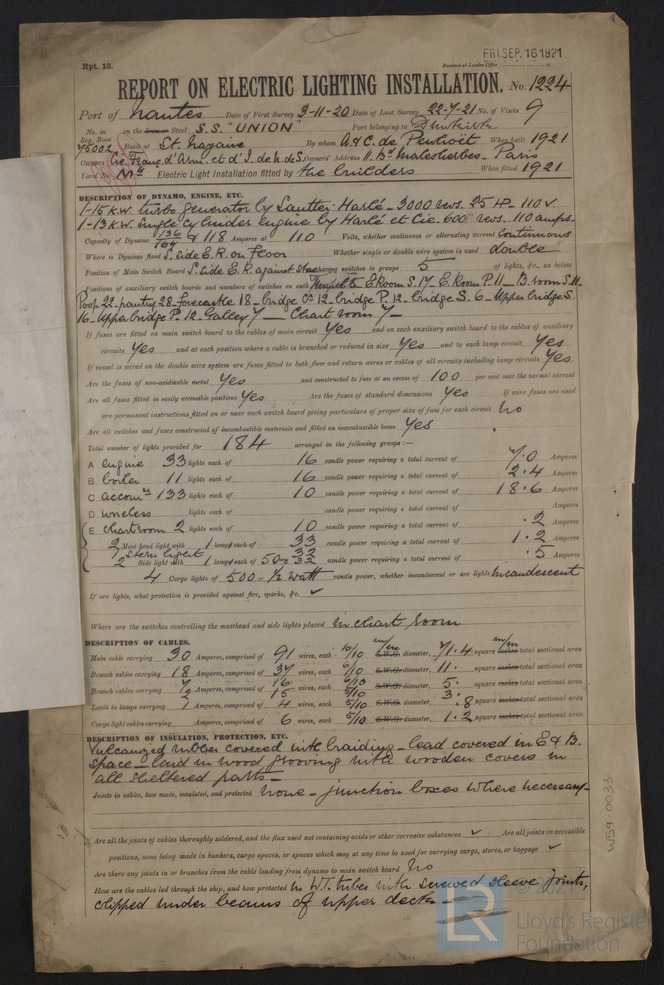 FRI. SEP. 16 1921
Rpt. 13.
Received at London Office
REPORT ON ELECTRIC LIGHTING INSTALLATION. No. 1224
Port of Nantes Date of First Survey 3-11-20 Date of Last Survey 22-7-21 No. of Visits 9
No. in Reg. Book on the Iron or Steel S.S. "UNION" Port belonging to Dunkirk
45002 Built at St. Nazaire By whom A. & C. de Penhoët When built 1921
Owners Cie Franç d'Arm. et d'I. de N. de S. Owners' Address 11. Bd Malesherbes - Paris
Yard No. M4 Electric Light Installation fitted by the builders When fitted 1921
DESCRIPTION OF DYNAMO, ENGINE, ETC.
1-15 K.W. turbo generator by Sautter-Harlé - 3000 revs. 25 HP - 110 v.
1-13 K.W. single cylinder engine by Harlé et Cie. 600 revs. 110 amps.
Capacity of Dynamo 136 & 118 Amperes at 110 Volts, whether continuous or alternating current Continuous
Where is Dynamo fixed S. side E.R. on floor Whether single or double wire system is used double
Position of Main Switch Board S. side E.R. against having switches to groups 5 of lights, &c., as below
Positions of auxiliary switch boards and numbers of switches on each E. Room S. 17 - E. Room P. 11 - B. room S. 11 -
Poop 22 - pantry 28 - Forecastle 18 - bridge C. 12 - bridge P. 12 - bridge S. 6 - Upper bridge S.
16 - Upper bridge P. 12 - Galley 7 - Chart room 7 -
If fuses are fitted on main switch board to the cables of main circuit Yes and on each auxiliary switch board to the cables of auxiliary
circuits Yes and at each position where a cable is branched or reduced in size Yes and to each lamp circuit Yes
If vessel is wired on the double wire system are fuses fitted to both flow and return wires or cables of all circuits including lamp circuits Yes
Are the fuses of non-oxidizable metal Yes and constructed to fuse at an excess of 100 per cent over the normal current
Are all fuses fitted in easily accessible positions Yes Are the fuses of standard dimensions Yes If wire fuses are used
are permanent instructions fitted on or near each switch board giving particulars of proper size of fuse for each circuit No
Are all switches and fuses constructed of incombustible materials and fitted on incombustible bases Yes
Total number of lights provided for 184 arranged in the following groups :—
A engine 33 lights each of 16 candle power requiring a total current of 7.0 Amperes
B boiler 11 lights each of 16 candle power requiring a total current of 2.4 Amperes
C accomn 133 lights each of 10 candle power requiring a total current of 18.6 Amperes
D wireless lights each of candle power requiring a total current of Amperes
E chartroom 2 lights each of 10 candle power requiring a total current of .2 Amperes
2 Mast head light with 1 lamp each of 33 candle power requiring a total current of 1.2 Amperes
1 Stern light 32
2 Side light with 1 lamp each of 50 32 candle power requiring a total current of .5 Amperes
4 Cargo lights of 500 - 1/2 Watt candle power, whether incandescent or arc lights Incandescent
If arc lights, what protection is provided against fire, sparks, &c. ✓
Where are the switches controlling the masthead and side lights placed in chart room
DESCRIPTION OF CABLES.
Main cable carrying 30 Amperes, comprised of 91 wires, each 10/10 m/m S.W.G. diameter, 71.4 square m/m inches total sectional area
Branch cables carrying 18 Amperes, comprised of 37 wires, each 6/10 S.W.G. diameter, 11. square inches total sectional area
Branch cables carrying 7 Amperes, comprised of 16 wires, each 6/10 S.W.G. diameter, 5. square inches total sectional area
2 15 5/10 3.
Leads to lamps carrying 1 Amperes, comprised of 4 wires, each 5/10 S.W.G. diameter, .8 square inches total sectional area
Cargo light cables carrying Amperes, comprised of 6 wires, each 5/10 S.W.G. diameter, 1.2 square inches total sectional area
DESCRIPTION OF INSULATION, PROTECTION, ETC.
Vulcanized rubber covered with braiding - lead covered in E & B.
space - laid in wood grooving with wooden covers in
all sheltered parts -
Joints in cables, how made, insulated, and protected None - junction boxes where necessary -
Are all the joints of cables thoroughly soldered, and the flux used not containing acids or other corrosive substances ✓ Are all joints in accessible
positions, none being made in bunkers, cargo spaces, or spaces which may at any time be used for carrying cargo, stores, or baggage ✓
Are there any joints in or branches from the cable leading from dynamo to main switch board No
How are the cables led through the ship, and how protected In W.T. tubes with screwed sleeve joints,
clipped under beams of upper deck -
W59-0033
LR © 2021
Lloyd's Register
Foundation